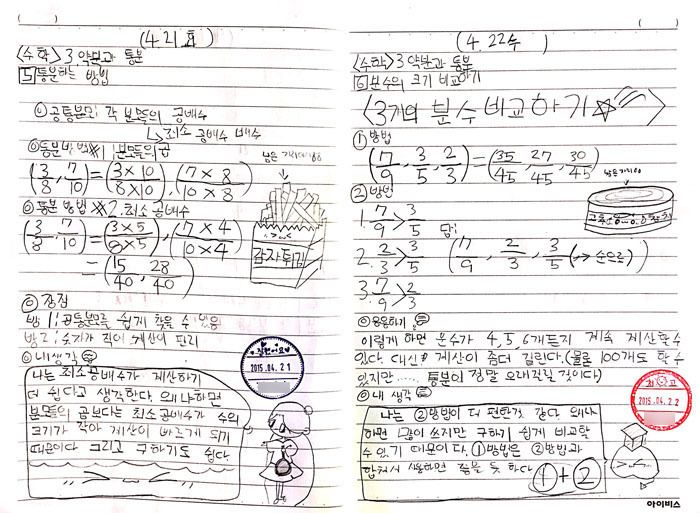 ( 4. 21 화 )
<수학> 3 약분과 통분
5 통분하는 방법
◎ 공통분모: 각 분모들의 공배수
↳ 최소 공배수 배수
◎ 통분 방법 *1. 분모들의 곱
(3/8, 7/10) = (3×10/8×10), (7×8/10×8)
◎ 통분 방법 *2. 최소 공배수
(3/8, 7/10) = (3×5/8×5), (7×4/10×4)
= (15/40, 28/40)
감자튀김
◎ 장점
방 1: 공통분모를 쉽게 찾을 수 있음
방 2: 숫자가 작아 계산이 편리
◎ 내생각
나는 최소공배수가 계산하기
더 쉽다고 생각한다. 왜냐하면
분모들의 곱보다는 최소공배수가 수의
크기가 작아 계산이 빠르게 되기
때문이다. 그리고 구하기도 쉽다.
참 잘했어요
2015. 04. 2 1
( 4. 22수 )
<수학> 3 약분과 통분
6 분수의 크기 비교하기
<3개의 분수 비교하기☆>
① 방법
(7/9, 3/5, 2/3) = (35/45, 27/45, 30/45)
② 방법
1. 7/9 > 3/5
답:
2. 2/3 > 3/5 (7/9, 2/3, 3/5 (→ 순으로)
3. 7/9 > 2/3
◎ 응용하기
이렇게 하면 분수가 4, 5, 6개든지 계속 계산할수
있다. 대신 계산이 좀더 길린다. (물론 100개도 할수
있지만 ..... 통분이 정말 오래걸릴 것이다)
◎ 내 생각
나는 ②방법이 더 편한것 같다. 왜냐
하면 많이 쓰지만 구하기 쉽게 비교할
수 있기 때문이다. ①방법은 ②방법과
합쳐서 사용하면 좋을 듯 하다.
①+②
최고
2015. 04. 2 2
아이비스